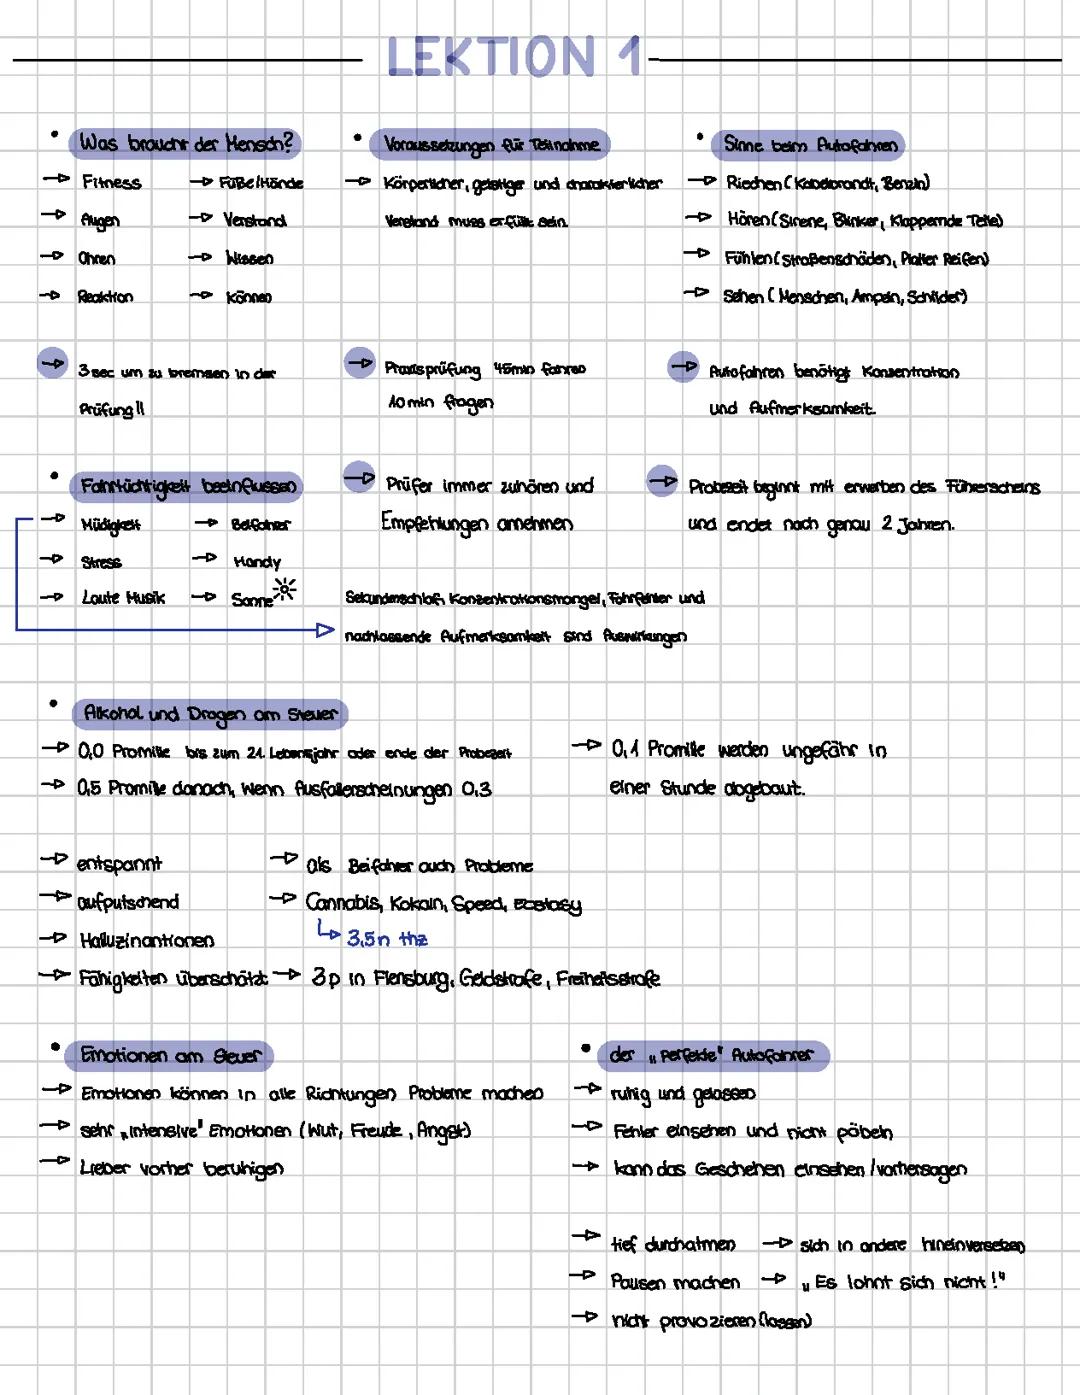 LEKTION 1
Was braucht der Mensch?
→ Fitness → Füße/Hände
→ Augen → Verstand
→ Ohren → Wissen
→ Reaktion → können
Voraussetzungen für Teilnahme
→ Körperlicher, geistiger und charakterlicher
Verstand muss erfüllt sein.
Sinne beim Autofahren
→ Riechen (Kabelbrandt, Benzin)
→ Hören (Sirene, Blinker, Klappernde Teile)
→ Fühlen (Straßenschäden, Platter Reifen)
→ Sehen (Menschen, Ampeln, Schilder)
→ 3 sec um zu bremsen in der
Prüfung!!
→ Praxisprüfung 45min fahren
10 min fragen
→ Autofahren benötigt Konzentration
und Aufmerksamkeit.
Fahrtüchtigkeit beeinflussen
→ Müdigkeit → Beifahrer
→ Stress → Handy
→ Laute Musik → Sonne
→ Prüfer immer zuhören und
Empfehlungen annehmen
→ Probezeit beginnt mit erwerben des Führerscheins
und endet nach genau 2 Jahren.
Sekundenschlaf, Konzentrationsmangel, Fahrfehler und
nachlassende Aufmerksamkeit sind Auswirkungen
Alkohol und Drogen am Steuer
→ 0,0 Promille bis zum 21. Lebensjahr oder ende der Probezeit
→ 0,5 Promille danach, wenn Ausfallerscheinungen 0,3
→ 0,1 Promille werden ungefähr in
einer Stunde abgebaut.
→ entspannt → als Beifahrer auch Probleme
→ aufputschend → Cannabis, Kokain, Speed, Ecstasy
↳ 3,5n thz
→ Halluzinantionen
→ Fähigkeiten überschätzt → 3p in Flensburg, Geldstrafe, Freiheitsstrafe
Emotionen am Steuer
→ Emotionen können in alle Richtungen Probleme machen
→ sehr „intensive" Emotionen (Wut, Freude, Angst)
→ Lieber vorher beruhigen
der „perfekte" Autofahrer
→ ruhig und gelassen
→ Fehler einsehen und nicht pöbeln
→ kann das Geschehen einsehen / vorhersagen
→ tief durchatmen → sich in andere hineinversetzen
→ Pausen machen → „Es lohnt sich nicht!"
→ nicht provozieren (lassen)